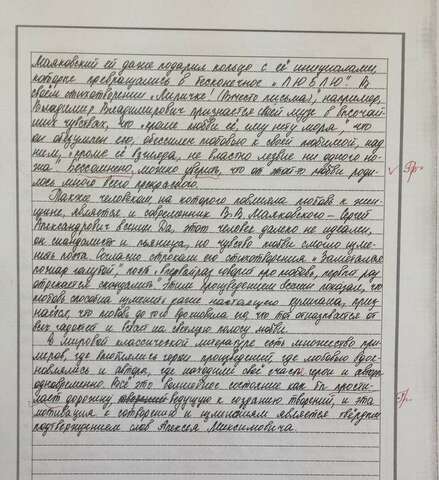 Маяковский ей даже подарил кольцо с её инициалами,
которые превращались в бесконечное „ЛЮБЛЮ". В
своём стихотворении „Лиличка! (Вместо письма)", например,
Владимир Владимирович признается своей музе в высочай-
ших чувствах, что „кроме любви её, ему нету моря", что
он обездолен ею, обессилен любовью к своей любимой, над
ним, „кроме её взгляда, не властно лезвие ни одного но-
жа". Бессомненно, можно уверить, что от этой-то любви роди-
лось много всего прекрасного.
Также человеком, на которого повлияла любовь к жен-
щине, является и современник В.В. Маяковского – Сергей
Александрович Есенин. Да, этот человек далеко не идеален,
он скандалист и пьяница, но чувство любви смогло изме-
нить поэта. Согласно строкам его стихотворения „Заметался
пожар голубой," поэт „в первый раз говорит про любовь, первый раз
отрекается скандалить". Этим произведением Есенин показал, что
любовь способна изменить даже настоящего хулигана, приз-
наётся, что любовь до того
всех гадостей и встаёт на светлую полосу любви.
В мировой классической литературе есть множество при-
меров, где воплотились герои произведений, где любовью вдох-
новлялись и автора, где находили своё счастье герои и автор
одновременно. Всё это волшебное состояние как бы прости-
лает дорожку ведущую к созданию творений, и эта
мотивация к сотворению и изменениям является твёрдым
подтверждением слов Алексея Максимовича.